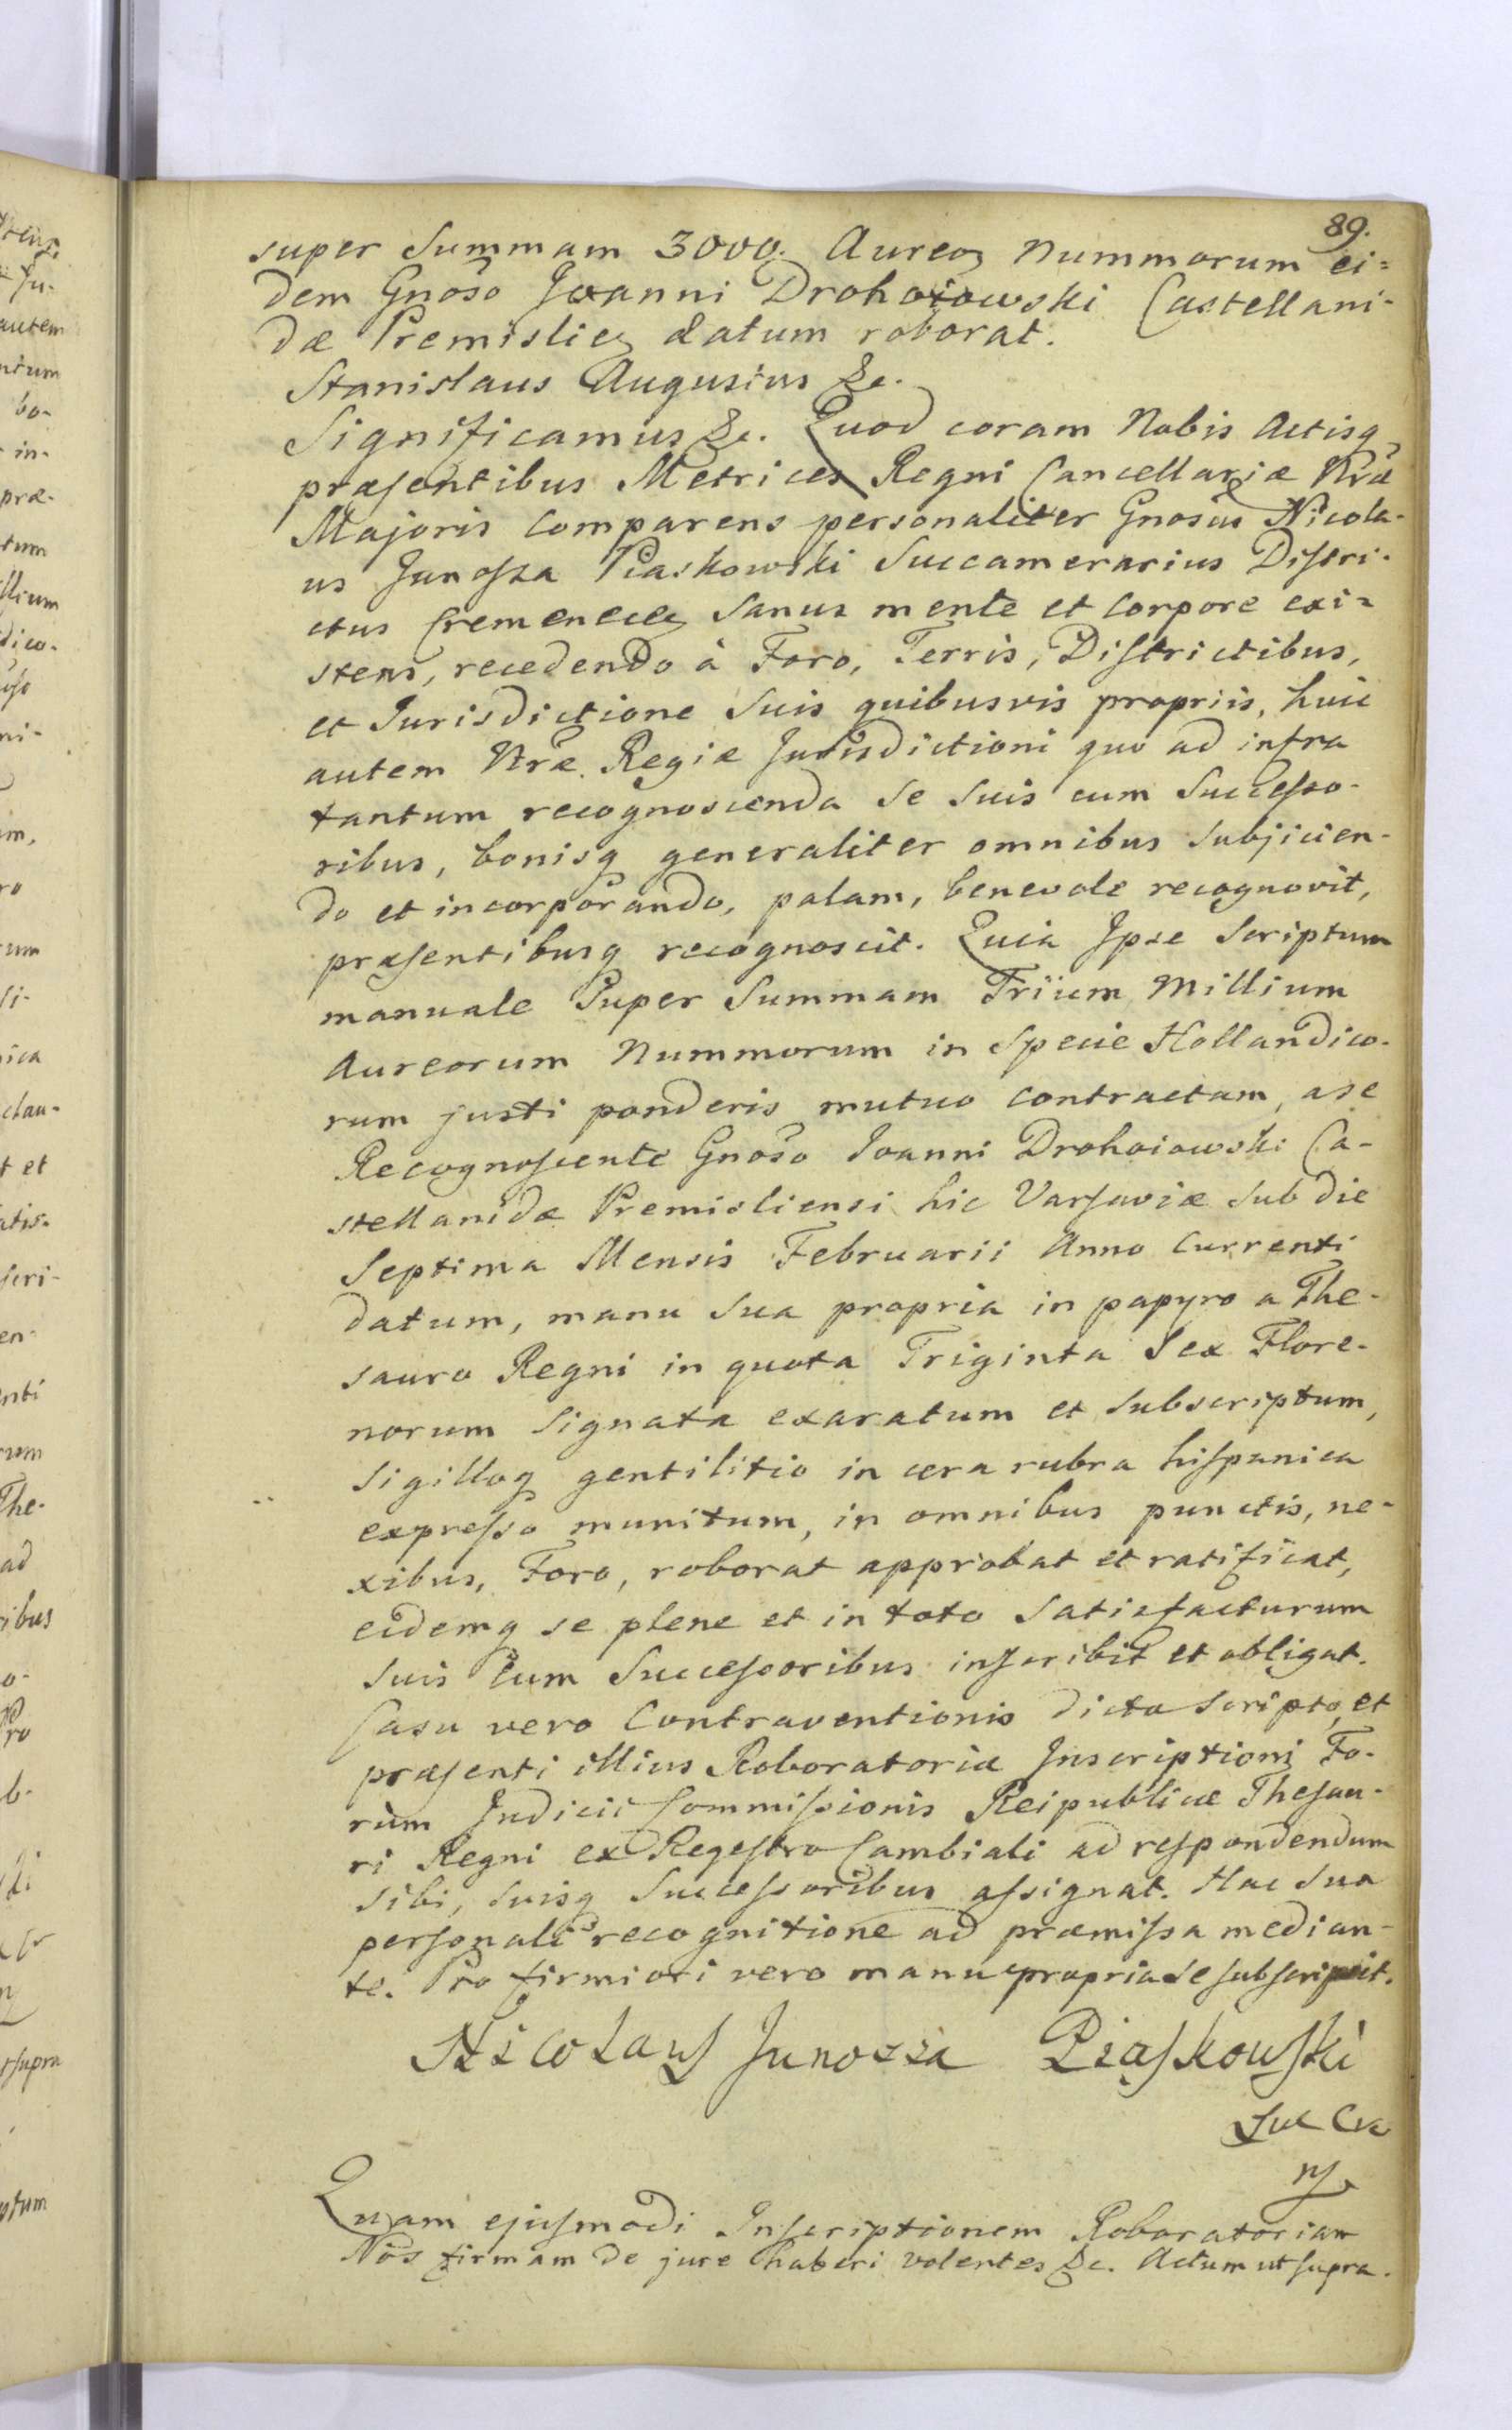 89.
super Summam 3000. Aureoꝝ Nummorum ei=
dem Gnoso Joanni Drohoiowski Castellani-
dæ Premislieꝝ datum roborat.
Stanislaus Augustus &c.
Significamus &c. Quod coram Nobis Actisq
præsentibus Metrices Regni Cancellariæ Nræ
Majoris Comparens personaliter Gnosus Nicola-
us Junosza Piaskowski Succamerarius Distri-
ctus Cremenecieꝝ Sanus mente et Corpore exi=
stens, recedendo à Foro, Terris, Districtibus,
et Jurisdictione Suis quibusvis propriis, huic
autem Nræ Regiæ Jurisdictioni quo ad infra
tantum recognoscenda Se Suis cum Successo-
ribus, bonisq generaliter omnibus Subjicien-
do et incorporando, palam, benevole recognovit,
præsentibusq recognoscit. Quia Ipse Scriptum
manuale Super Summam Trium Millium
Aureorum Nummorum in Specie Hollandico-
rum justi ponderis mutuo contractam, a se
Recognoscente Gnoso Joanni Drohoiowski Ca-
stellanidæ Premisliensi hic Varsaviæ Sub die
Septima Mensis Februarii Anno Currenti
datum, manu Sua propria in papyro a The-
sauro Regni in quota Triginta Sex Flore-
norum Signata exaratum et Subscriptum,
Sigilloq gentilitio in cera rubra hispanica
expresso munitum, in omnibus punctis, ne-
xibus, Foro, roborat approbat et ratificat,
eidemq se plene et in toto Satisfacturum
Suis Cum Successoribus inscribit et obligat.
Casu vero Contraventionis dicto Scripto, et
præsenti illius Roboratoriæ Inscriptioni Fo-
rum Judicii Commissionis Reipublicæ Thesau-
ri Regni ex Regestro Cambiali ad respondendum
Sibi, Suisq Successoribus assignat. Hac Sua
personali recognitione ad præmissa median-
te. Pro firmiori vero manu propria Se subscripsit.
Nicolaus Junosza Piaskowski
Suc Cre
Quam ejusmodi Inscriptionem Roboratoriam
Nos firmam de jure haberi volentes &c. Actum ut supra.